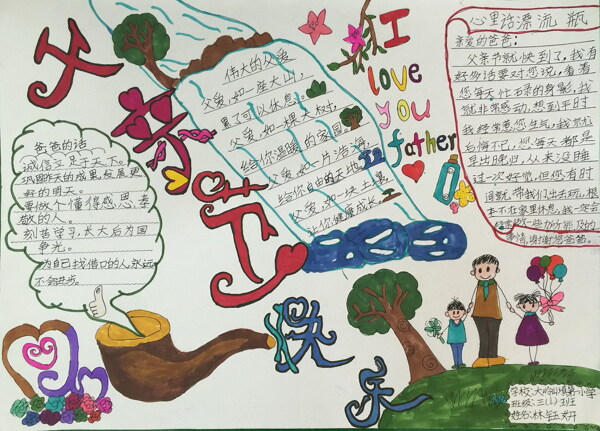 父亲节
快乐
I
love
you
father
伟大的父爱
父爱,如一座大山,
累了可以休息。
父爱,如一棵大树,
给你温暖的家园。
父爱,如一片浩海,
给你自由的天地。
父爱,如一块土壤,
让你健康成长。
心里话漂流瓶
亲爱的爸爸:
父亲节就快到了,我有
好多话要对您说,看着
您每天忙碌的身影,我
就非常感动,想到平时
我经常惹您生气,我就
后悔不已,您每天都是
早出晚归,从来没睡
过一次好觉,但您有时
间就带我们出去玩,根
本不在家里休息,我一定会
做一些力所能及的
事情,谢谢您爸爸。
爸爸的话
诚信立足于天下。
巩固昨天的成果,发展更
好的明天。
要做个懂得感恩、孝
敬的人。
刻苦学习,长大后为国
争光。
为自己找借口的人,永远
不会进步。
学校:大岭山镇第一小学
班级:三(1)班
姓名:林钰妍